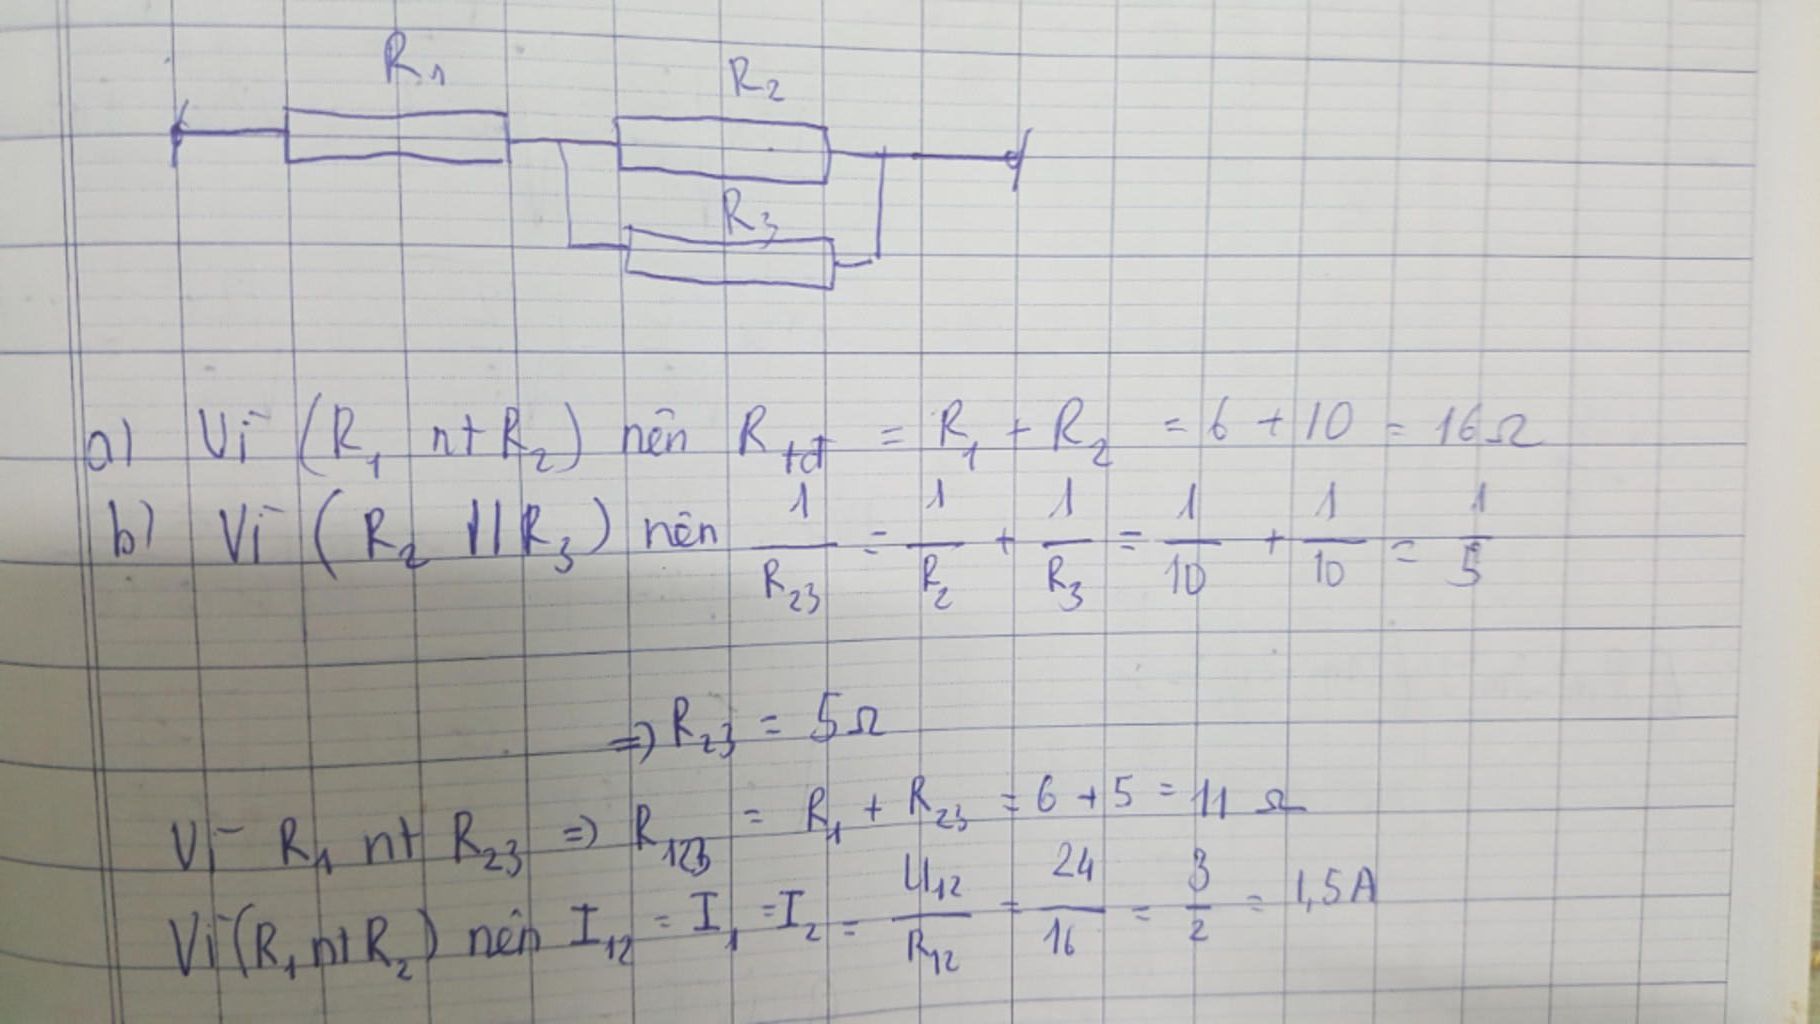 R₁
R₂
R₃
a) Vì (R₁ nt R₂) nên R_tđ = R₁ + R₂ = 6 + 10 = 16Ω
b) Vì (R₂ // R₃) nên 1/R₂₃ = 1/R₂ + 1/R₃ = 1/10 + 1/10 = 1/5
=> R₂₃ = 5Ω
Vì R₁ nt R₂₃ => R₁₂₃ = R₁ + R₂₃ = 6 + 5 = 11 Ω
Vì (R₁ nt R₂) nên I₁₂ = I₁ = I₂ = U₁₂/R₁₂ = 24/16 = 3/2 = 1,5A